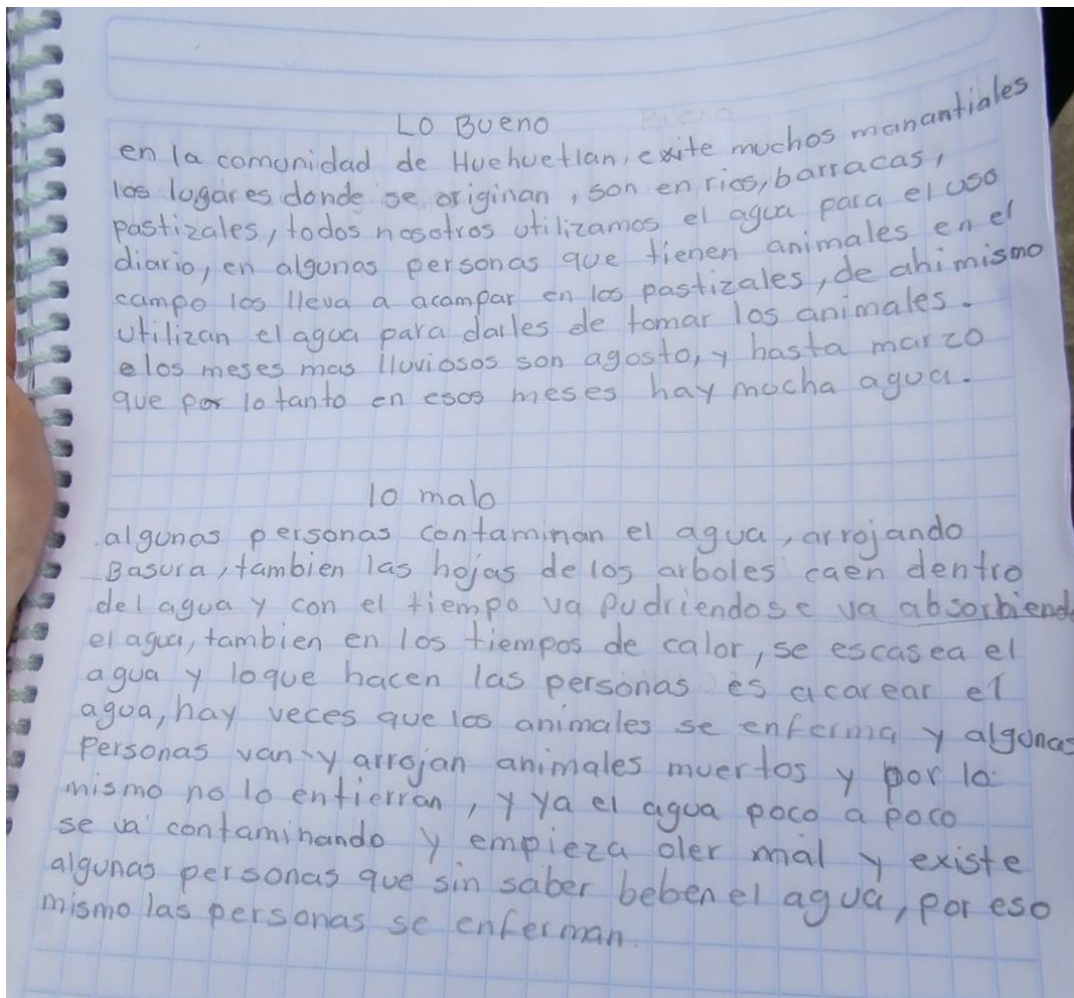 Lo Bueno
en la comunidad de Huehuetlan, exite muchos manantiales
los lugares donde se originan, son en rios, barracas,
pastizales, todos nosotros utilizamos el agua para el uso
diario, en algunas personas que tienen animales en el
campo los lleva a acampar en los pastizales, de ahi mismo
utilizan el agua para darles de tomar los animales.
los meses mas lluviosos son agosto, y hasta marzo
que por lo tanto en esos meses hay mucha agua.
lo malo
algunas personas contaminan el agua, arrojando
Basura, tambien las hojas de los arboles caen dentro
del agua y con el tiempo va pudriendose va absorbiend
el agua, tambien en los tiempos de calor, se escasea el
agua y loque hacen las personas es acarear el
agua, hay veces que los animales se enferma y algunas
Personas van y arrojan animales muertos y por lo
mismo no lo entierran, y ya el agua poco a poco
se va contaminando y empieza oler mal y existe
algunas personas que sin saber beben el agua, por eso
mismo las personas se enferman.